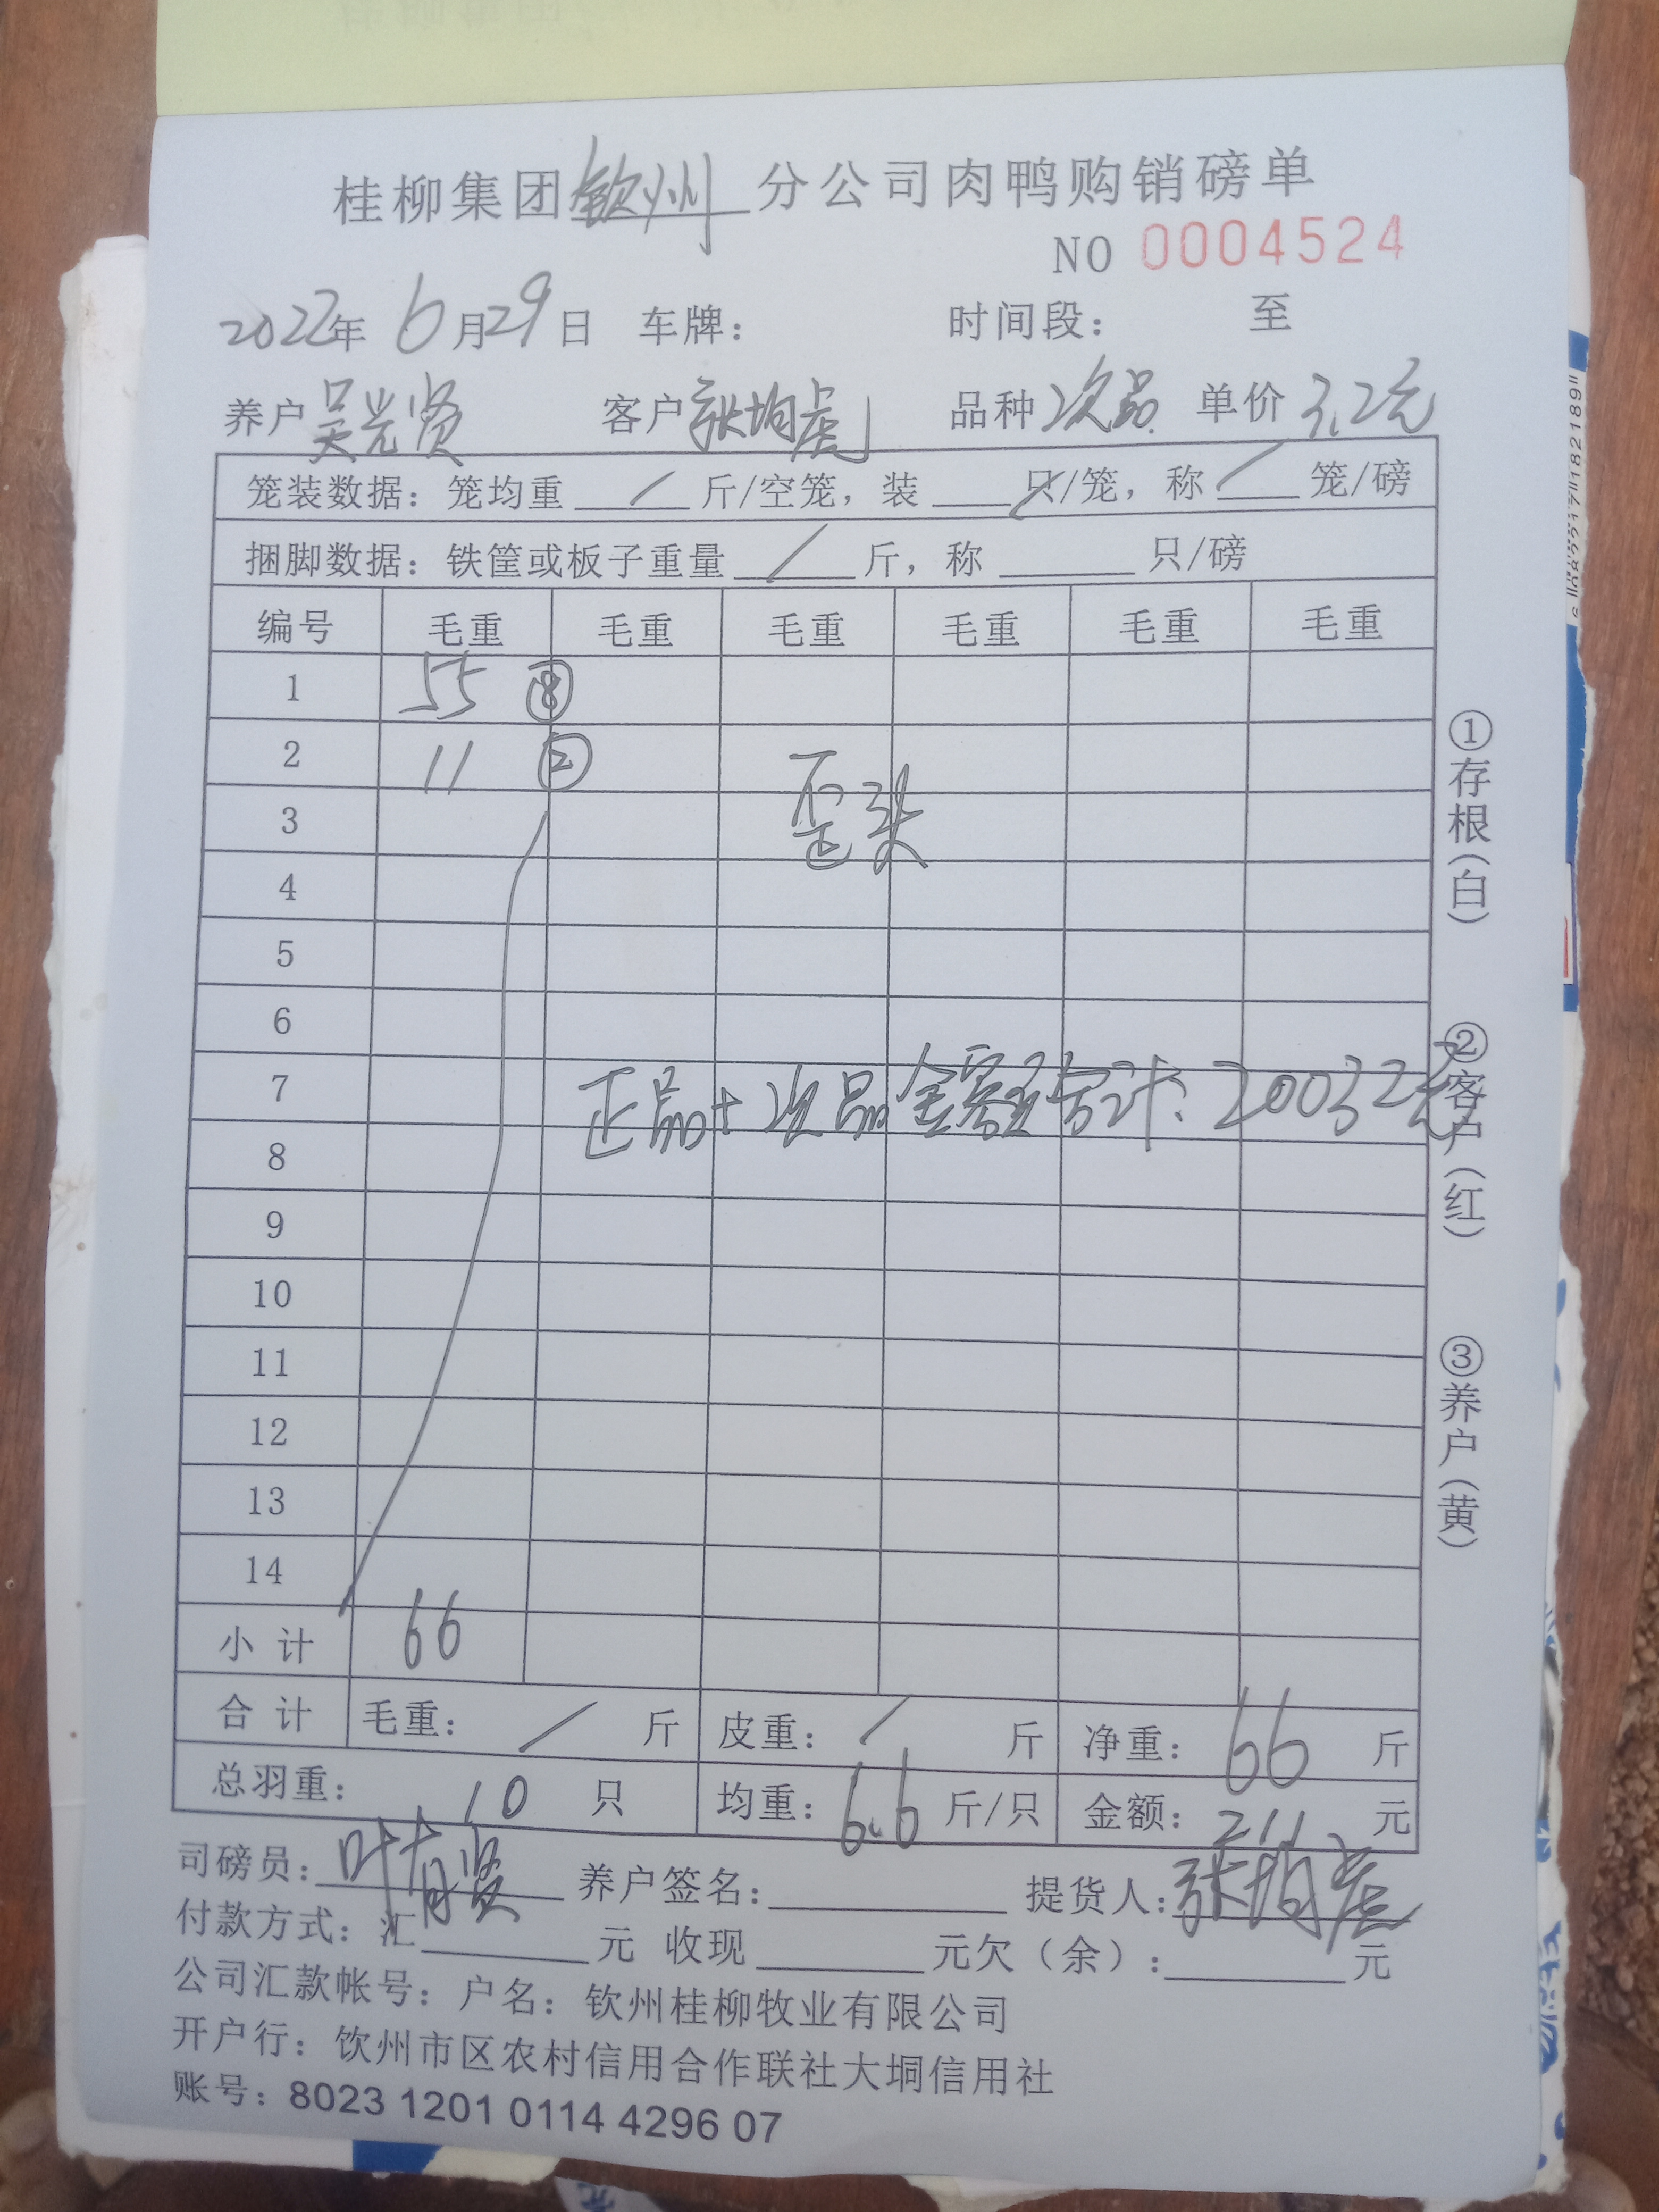 桂柳集团钦州分公司肉鸭购销磅单
NO 0004524
2022年 6月29日 车牌： 时间段： 至
养户吴光贤 客户张均彪 品种次品 单价3.2元
笼装数据：笼均重 / 斤/空笼，装 / 只/笼，称 / 笼/磅
捆脚数据：铁筐或板子重量 / 斤，称 只/磅
编号 毛重 毛重 毛重 毛重 毛重 毛重
1 55 ⑧
2 11 ②
歪头
3
4
5
6
7 正品+次品金额合计：20032元
8
9
10
11
12
13
14
小计 66
合计 毛重： / 斤 皮重： / 斤 净重：66 斤
总羽重： 10 只 均重：6.6 斤/只 金额：211 元
司磅员：叶育贤 养户签名： 提货人：张均彪
付款方式：汇 元 收现 元欠（余）： 元
公司汇款帐号：户名：钦州桂柳牧业有限公司
开户行：钦州市区农村信用合作联社大垌信用社
账号：8023 1201 0114 4296 07
①存根（白）
②客户（红）
③养户（黄）